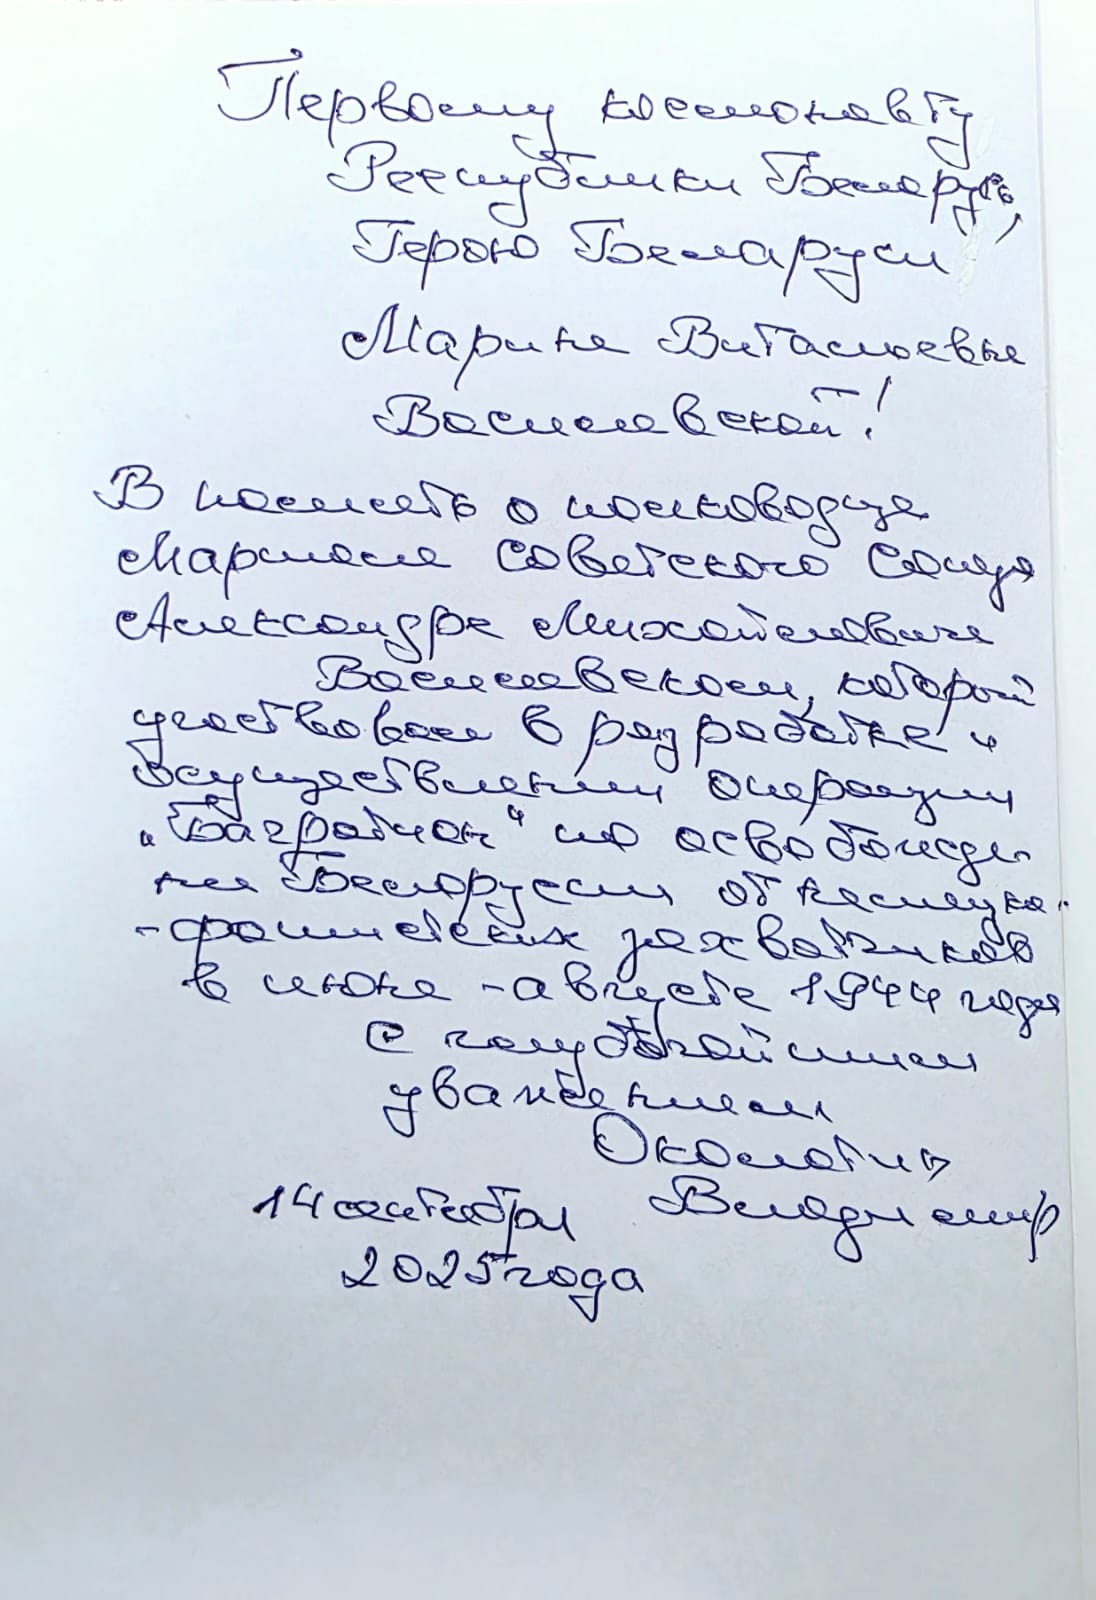 Первому космонавту
Республики Беларусь,
Герою Беларуси
Марине Витальевне
Василевской!
В память о полководце
Маршале Советского Союза
Александре Михайловиче
Василевском, который
участвовал в разработке и
осуществлении операции
„Багратион“ по освобожде-
нию Белоруссии от немецко-
-фашистских захватчиков
в июне - августе 1944 года
С глубочайшим
уважением
Околотин
14 сентября Владимир
2025 года